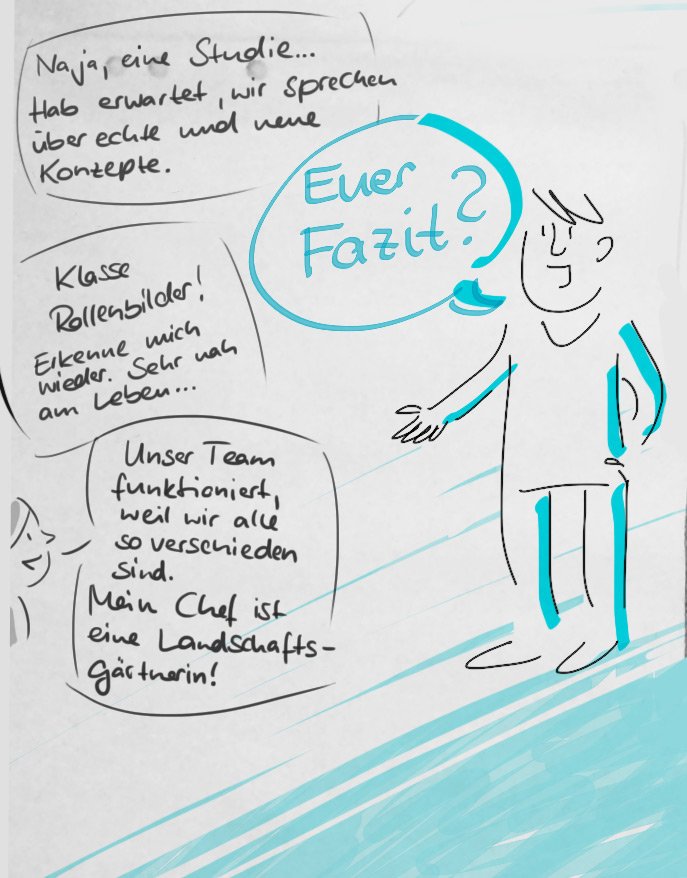 Naja, eine Studie...
Hab erwartet, wir sprechen
über echte und neue
Konzepte.
Euer
Fazit?
Klasse
Rollenbilder!
Erkenne mich
wieder. Sehr nah
am Leben...
Unser Team
funktioniert,
weil wir alle
so verschieden
sind.
Mein Chef ist
eine Landschafts-
Gärtnerin!